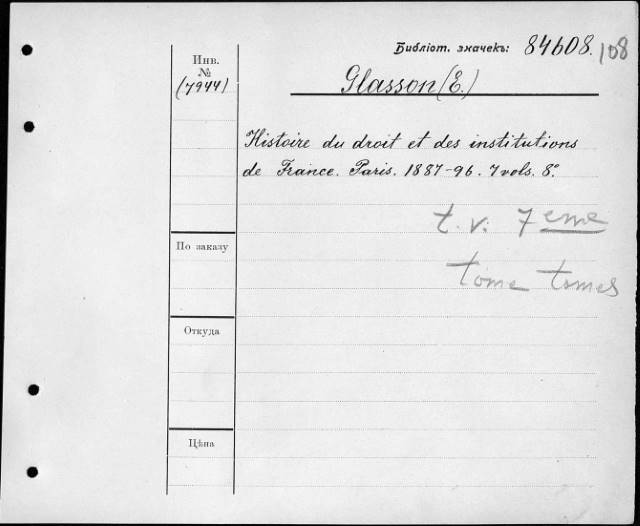 Библіот. значекъ: 84608. 108
Инв.
№
(7944)
Glasson (E.)
Histoire du droit et des institutions
de France. Paris. 1887-96. 7 vols. 8°.
t. v. 7 eme
tome tomes
По заказу
Откуда
Цѣна